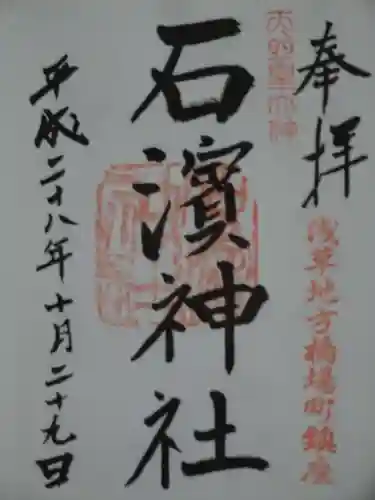 奉拝
浅草地方橋場町鎮座
石濵神社
平成二十八年十月二十九日